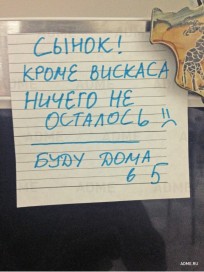 СЫНОК!
КРОМЕ ВИСКАСА
НИЧЕГО НЕ
ОСТАЛОСЬ !!
БУДУ ДОМА
в 5
ADME.RU